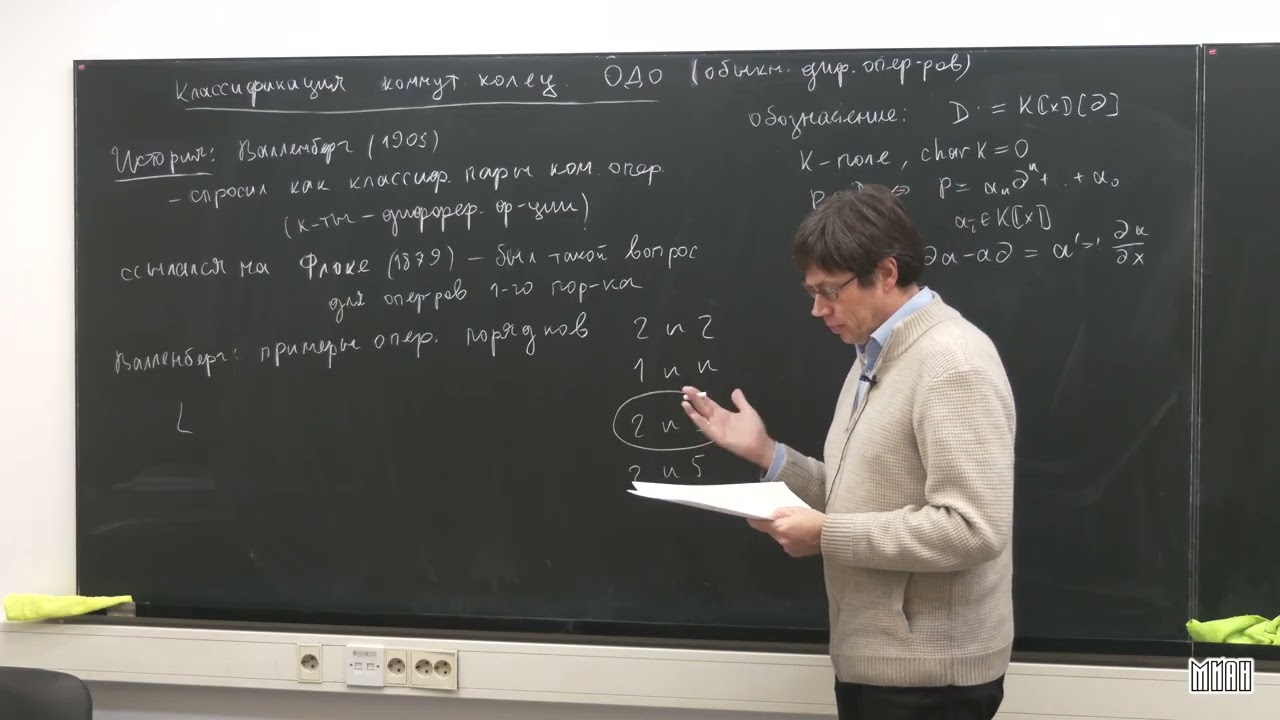 Классификация коммут. колец ОДО (обыкн. диф. опер-ров)
История: Валленберг (1903)
– спросил как классиф. пары ком. опер.
(к-ты – дифферер. ф-ции)
ссылался на Флоке (1879) – был такой вопрос
для опер-ров 1-го пор-ка
Валленберг: примеры опер. порядков 2 и 2
1 и n
2 и
2 и 5
L
обозначение: D := K[[x]][∂]
K-поле, char K = 0
P = a_n ∂^n + .. + a_0
a_i ∈ K[[x]]
∂a – a∂ = a' = ∂a/∂x
МИАН